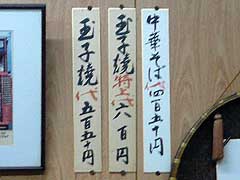 中華そば代四百五十円
玉子焼特上代六百円
玉子焼代五百五十円